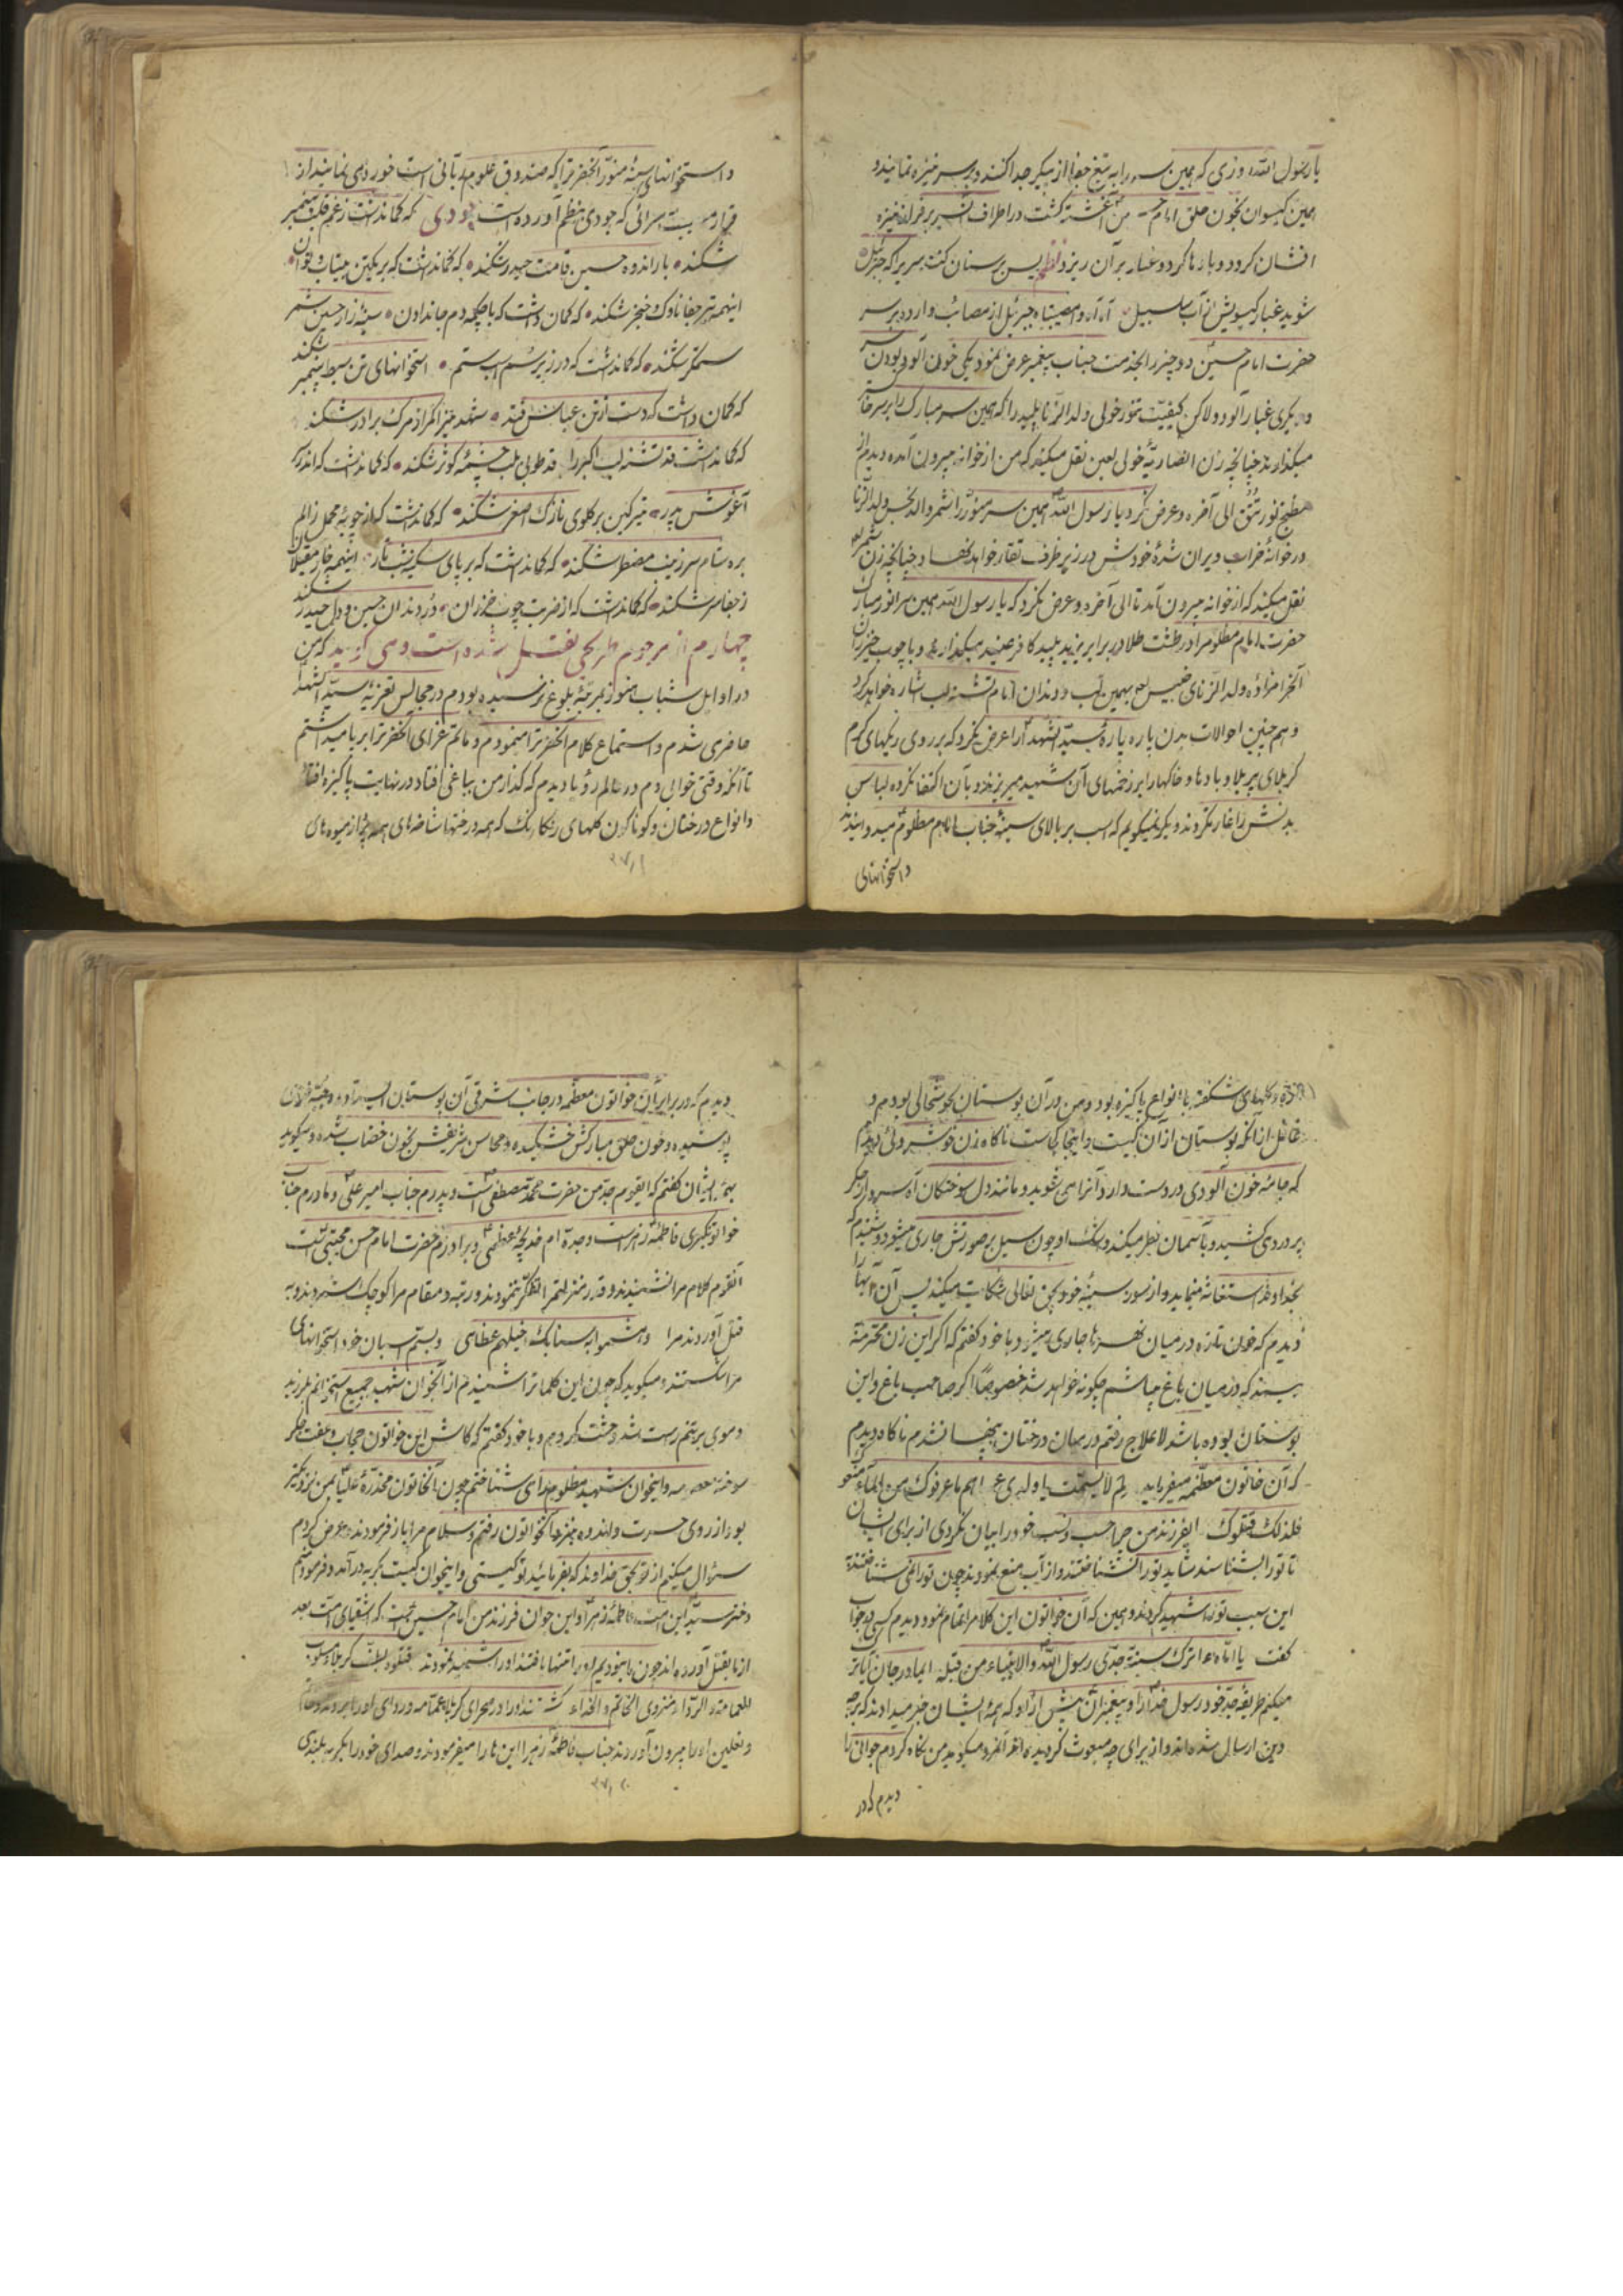 یا رسول الله روزی که همین سر را به تیغ جفا از پیکر جدا کنند و بر سر نیزه نمایند و
همین کیسوان بخون حلق امام من آغشته کشت در اطراف
افشان کردد و بادها کرد و غبار بر آن ریزد نظم پس بر سنان کنت سریرا که جبرئیل
شوید غبار کیسویش از آب سلسبیل آه آه وامصیبتاه جبرئیل از مصائب وارده بر سر
حضرت امام حسین دو چیز را بخدمت جناب پیغمبر عرض نمود یکی خون آلود بودن
و دیکری غبار آلود و لاکن کیفیت تنور خولی ولد الزنا پلید را که همین سر مبارک را بر سر
میکذارد چنانچه زن انصاریهٔ خولی لعین نقل میکند که من از خوانه بیرون آمده دیدم از
مطبخ نور تتق الی آخره و عرض نکرد یا رسول الله همین سر منور را شمر ولد الزنا
در خوانهٔ خراب ویران شدهٔ خودش در زیر ظرف تغار خواهد نهاد چنانچه زن شمر
نقل میکند که از خوانه بیرون آمد تا الی آخره و عرض نکرد که یا رسول الله همین سر انور مبارک
حضرت امام مظلوم را در طشت طلا در برابر یزید پلید کافر عنید میکذارند و با چوب خیزران
آنحرامزاده ولد الزنای خبیس بهمین لب و دندان امام تشنه لب اشاره خواهد کرد
و هم چنین احوالات بدن پاره پارهٔ سید الشهدا را عرض نکرد که بر روی ریکهای کرم
کربلای پربلا و بادها و خاکها را بر زخمهای آن شهید میریزند و بآن اکتفا نکرده لباس
بدنش را غارت کردند دیکر نمیکویم که اسب بر بالای سینهٔ جناب امام مظلوم میدوانیدند
و استخوانهای
و استخوانهای سینهٔ منور آنحضرترا که صندوق علوم ربانی است خورد می نمایند از
قرار مرثیت سرائی که جودی بنظم آورده است جودی که کمانداشت ز غم قلب پیمبر
شکند بار اندوه حسین قامت حیدر شکند که کمانداشت که بر یکتن بیتاب و توان
اینهمه تیر جفا ناوک و خنجر شکند که کمان داشت که با چکمه دم جان دادن سینهٔ زار حسین شمر
ستمکر شکند که کمانداشت که در زیر سم اسب ستم استخوانهای تن سبط پیمبر شکند
که کمان داشت که دست از تن عباس فتد پشت شهد میز اکر از مرک برادر شکند
که کمانداشت قد تشنه لب اکبر را قد طوبی بلب چشمهٔ کوثر شکند که کمانداشت که اندر
آغوش پدر تیر کین بر کلوی نازک اصغر شکند که کمانداشت که از چوبهٔ محمل زالم
بره شام سر زینب مضطر شکند که کمانداشت که بر پای سکینه شب تار اینهمه خار مغیلان
ز جفا سر شکند که کمانداشت که از ضربت چوب خیزران در دندان حسین و دل حیدر شکند
چهارم از مرحوم طریحی نقل شده است و می کوید که من
در اوایل شباب هنوز بمرتبهٔ بلوغ نرسیده بودم در مجالس تعزیهٔ سید الشهدا
حاضر می شدم و استماع کلام آنحضرترا مینمودم و ماتم عزای آنحضرترا برپا میداشتم
تا آنکه وقتی خوابیدم در عالم رؤیا دیدم که کذار من بباغی افتاد در نهایت پاکیزه
و انواع درختان و کوناکون کلهای رنکارنک که همه درختها شاخه های همه پر از میوه های
۳۷۱
و کلهای شکفته بانواع پاکیزه بود و من در آن بوستان بخوشحالی بودم و
غافل از آنکه بوستان از آن کیست و اینجا کجاست ناکاه زن خوش روئی دیدم
که جامهٔ خون آلودی در دست دارد و آنرا می شوید و مانند دل سوختکان آه سرد از جکر
پر درد می کشید و بآسمان نظر میکند و اشک او چون سیل بر صورتش جاری میشود و شنیدم که
بخداوند استغاثه مینماید و از سوز سینهٔ خود بحق تعالی شکایت میکند پس آن آبها را
دیدم که خون تازه در میان نهرها جاری میشود و با خود کفتم که اکر این زن محترمه
ببیند که در میان باغ میباشم چکونه خواهد شد خصوصاً اکر صاحب باغ و این
بوستان بوده باشد لاعلاج رفتم در میان درختان پنهان شدم ناکاه دیدم
که آن خاتون معظمه میفرماید لم لا یسمت یا ولدی اهم ما عرفوک من الماء منعوک
فلذلک قتلوک ایفرزند من چرا حسب و نسب خود را بیان نکردی از برای ایشان
تا تو را بشناسند شاید تو را نشناختند و از آب منع نمودند چون تو را نمی شناختند
این سبب تو را شهید کردند و همین که آن خواتون این کلام را تمام نمود دیدم کسی در جواب
کفت یا اماه اترک سنة جدی رسول الله والانبیاء من قبله ایمادر جان آیا ترک
میکنم طریقهٔ جد خود رسول خدا را و پیغمبران پیش از او که همهٔ ایشان خبر میدادند که بر چه
دین ارسال شده اند و از برای چه مبعوث کردیده اند آنمرد میکوید من نکاه کردم جوانی را
دیدم که در
دیدم که در برابر آن خواتون معظمه در جانب شرقی آن بوستان ایستاده و جبهٔ
پوشیده و خون حلق مبارکش خشکیده و محاسن شریفش بخون خضاب شده و میکوید
بهمه ایشان کفتم که ایقوم جد من حضرت محمد مصطفی است و پدرم جناب امیر علی و مادرم جناب
خواتون کبری فاطمهٔ زهراست و جدهٔ ام خدیجهٔ عظمی و برادرم حضرت امام حسن مجتبی است
آنقوم کلام مرا نشنیدند و قدر و منزلت مرا تفکر ننمودند و رتبه و مقام مرا کوچک شمردند و به
قتل آوردند مرا و هشموا بسنابک خیلهم عظامی و بسم اسبان خود استخوانهای
مرا شکستند و میکوید که چون این کلماترا شنیدم از آنجوان شهید جمیع استخوانم بلرزید
و موی بر تنم راست شد و وحشت کردم و با خود کفتم که کاش این خواتون حجاب و عفت جکر
سوخته و اینجوان شهید مظلوم را می شناختم چون آنخاتون مخدرهٔ علیا بمن نزدیکتر
بود از روی حسرت و اندوه بنزد آنخواتون رفتم و سلام مرا باز فرمودند و عرض کردم
سؤال میکنم از تو بحق خداوند که بفرمائید تو کیستی و اینجوان کیست بکریه در آمد و فرمود منم
دختر سید این امت فاطمهٔ زهرا و این جوان فرزند من امام حسین است که اشقیای امت بعد
از ما بقتل آورده اند چون ما نبودیم او را تنها یافتند او را شهید نمودند فتقوه بطف کربلا مسلوب
العمامة و الرداء منزوی الخاتم و الحذاء کشتند او را در صحرای کربلا عمامه و ردای او را بردند
و نعلین او را بیرون آوردند جناب فاطمهٔ زهرا این ها را میفرمودند و صدای خود را بکریه بلندی
۳۷۲